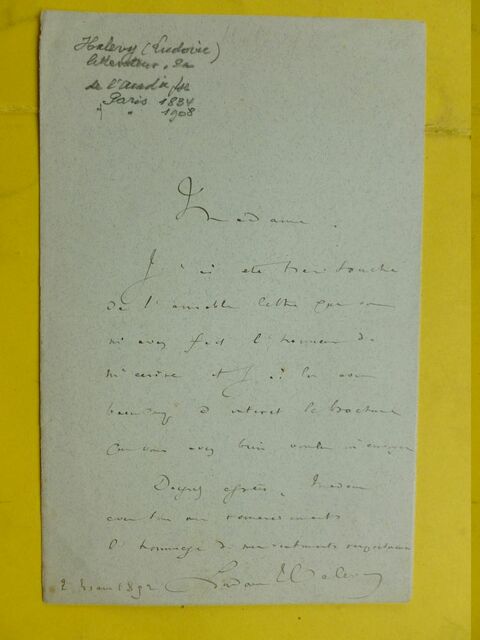 Halevy (Ludovic)
litterateur, de
de l'Acad. fse
Paris 1834
" " 1908
Madame,
J'ai été très touché
de l'aimable lettre que vous
m'avez fait l'honneur de
m'écrire et j'ai lu avec
beaucoup d'intérêt la brochure
que vous avez bien voulu m'envoyer
Daignez agréer, Madame
avec tous mes remerciements
l'hommage de mes sentiments respectueux
2 1892 Ludovic Halévy